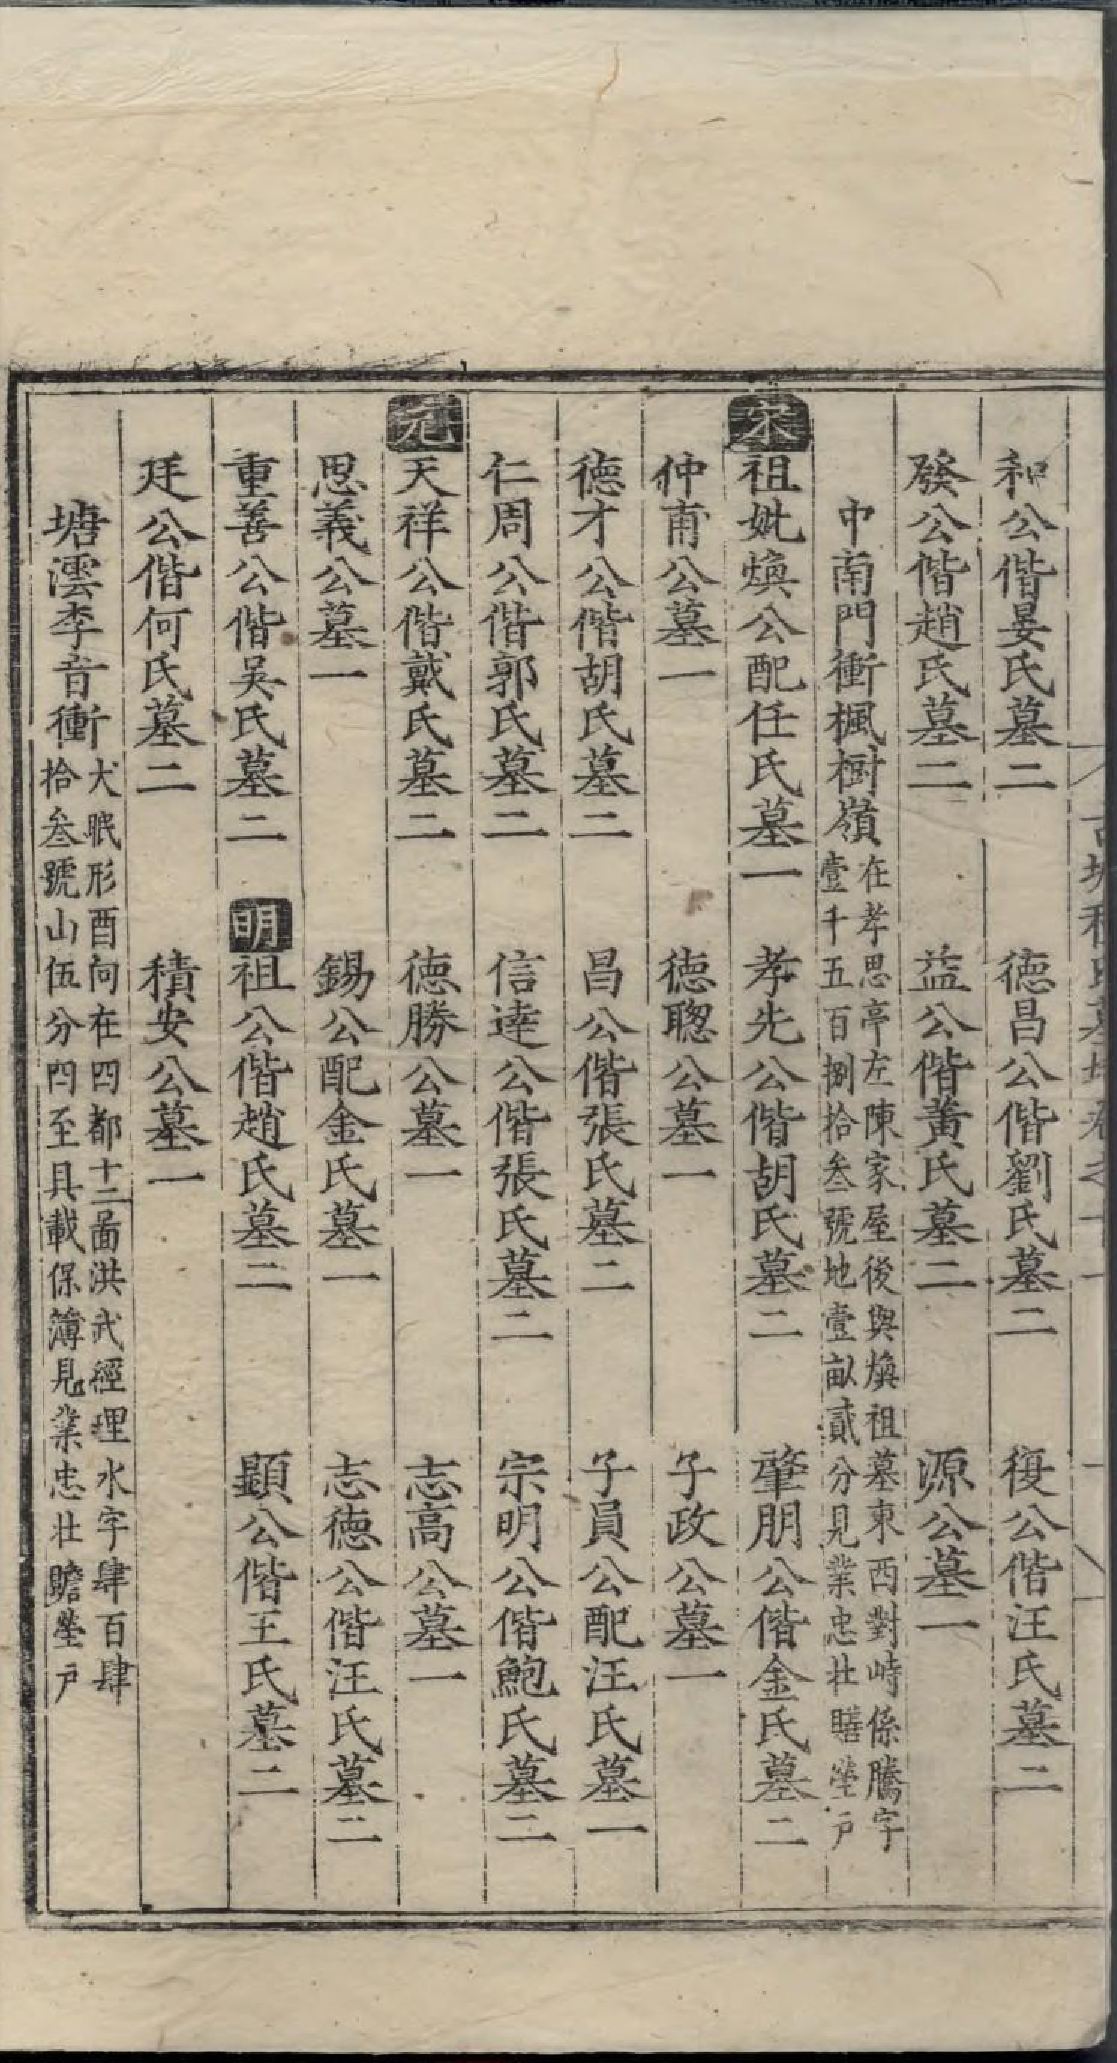 和公偕晏氏墓二　德昌公偕劉氏墓二　復公偕汪氏墓二
發公偕趙氏墓二　益公偕黃氏墓二　源公墓一
中南門衝楓樹嶺
在孝思亭左陳家屋後與煥祖墓東西對峙係騰字
壹千五百捌拾叁號地壹畝貳分見業忠壯膳塋戶
宋　祖妣煥公配任氏墓一　孝先公偕胡氏墓二　肇朋公偕金氏墓二
仲甫公墓一　德聰公墓一　子政公墓一
德才公偕胡氏墓二　昌公偕張氏墓二　子員公配汪氏墓一
仁周公偕郭氏墓二　信達公偕張氏墓二　宗明公偕鮑氏墓二
元　天祥公偕戴氏墓二　德勝公墓一　志高公墓一
思義公墓一　錫公配金氏墓一　志德公偕汪氏墓二
重善公偕吳氏墓二　明　祖公偕趙氏墓二　顯公偕王氏墓二
廷公偕何氏墓二　積安公墓一
塘澐李音衝
犬眠形酉向在四都十二啚洪武經理水字肆百肆
拾叁號山伍分四至具載保簿見業忠壯贍塋戶